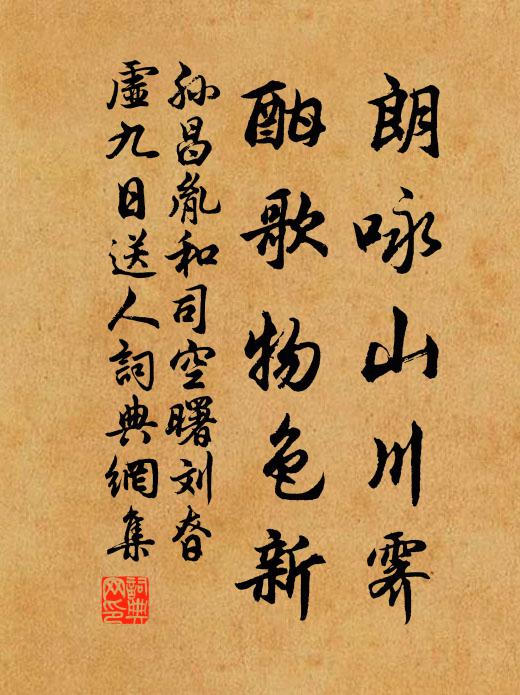 朗咏山川霽
酣歌物色新
孫昌胤和司空曙刘眘
虛九日送人詞典網集
詞典网印